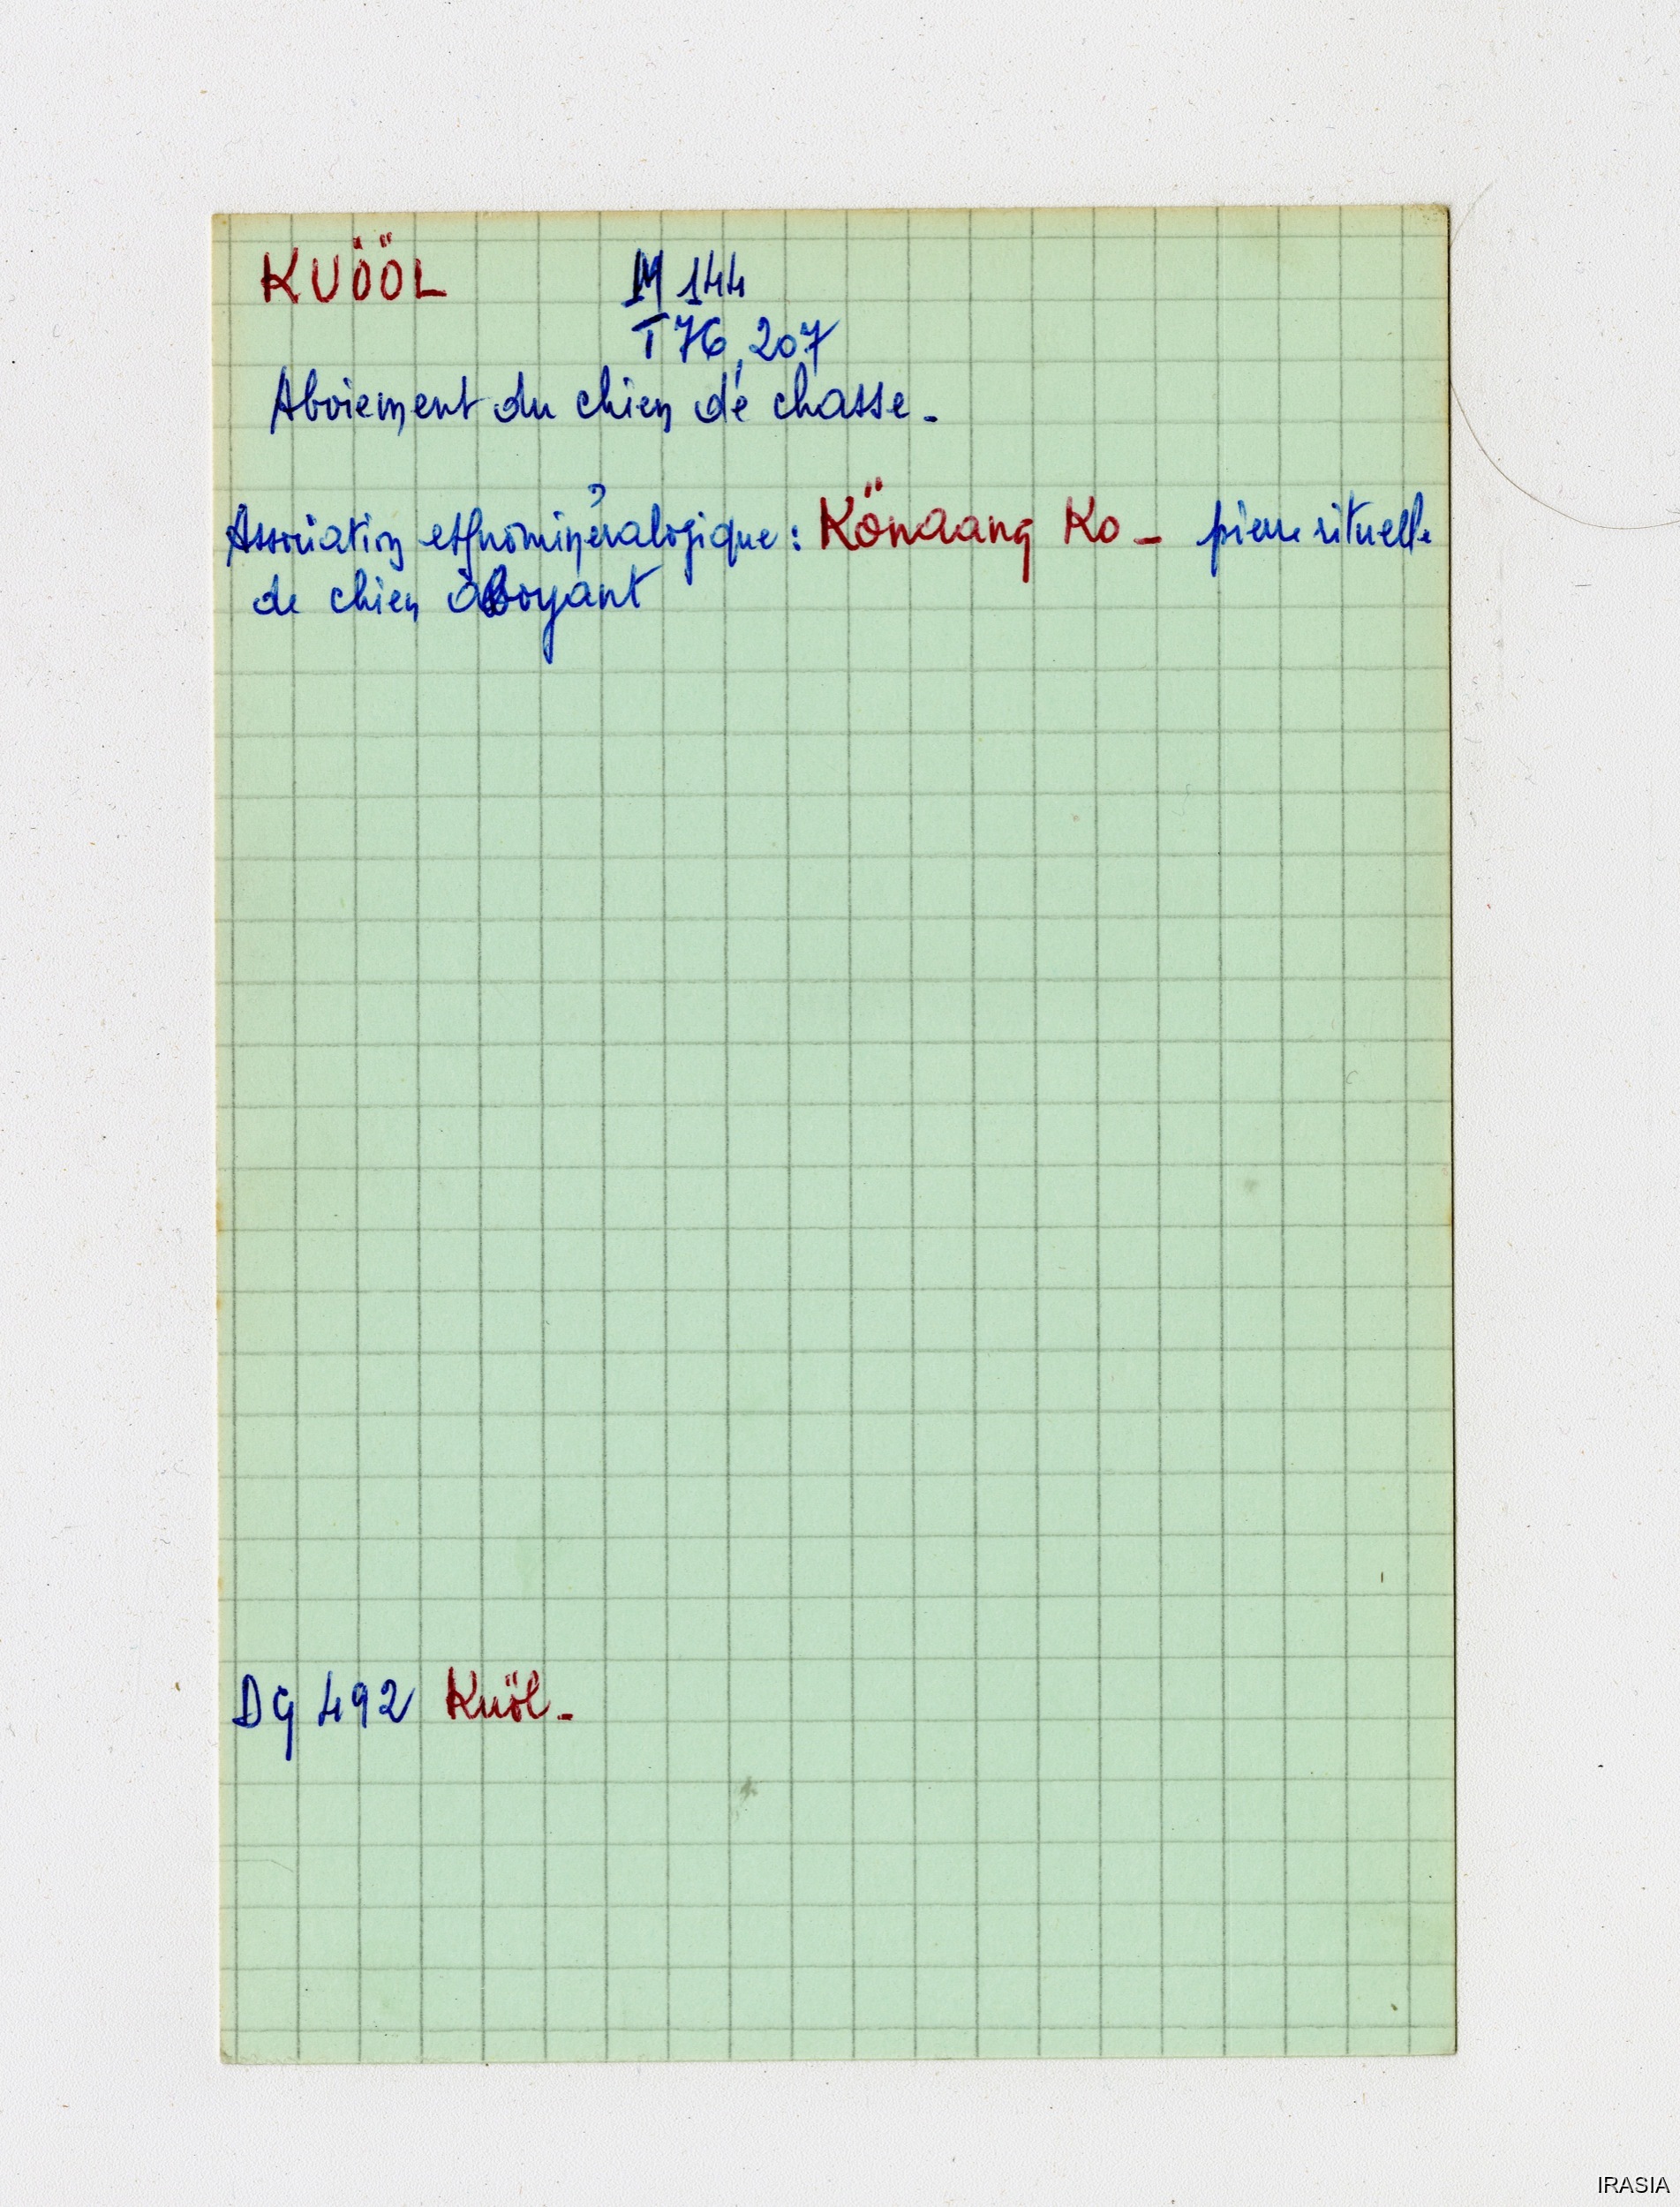 KUÖÖL M 144
T 76, 207
Aboiement du chien de chasse -
Association ethnominéralogique : Könaang Ko - pierre rituelle
de chien aboyant
DG 492 Kuöl -
IRASIA